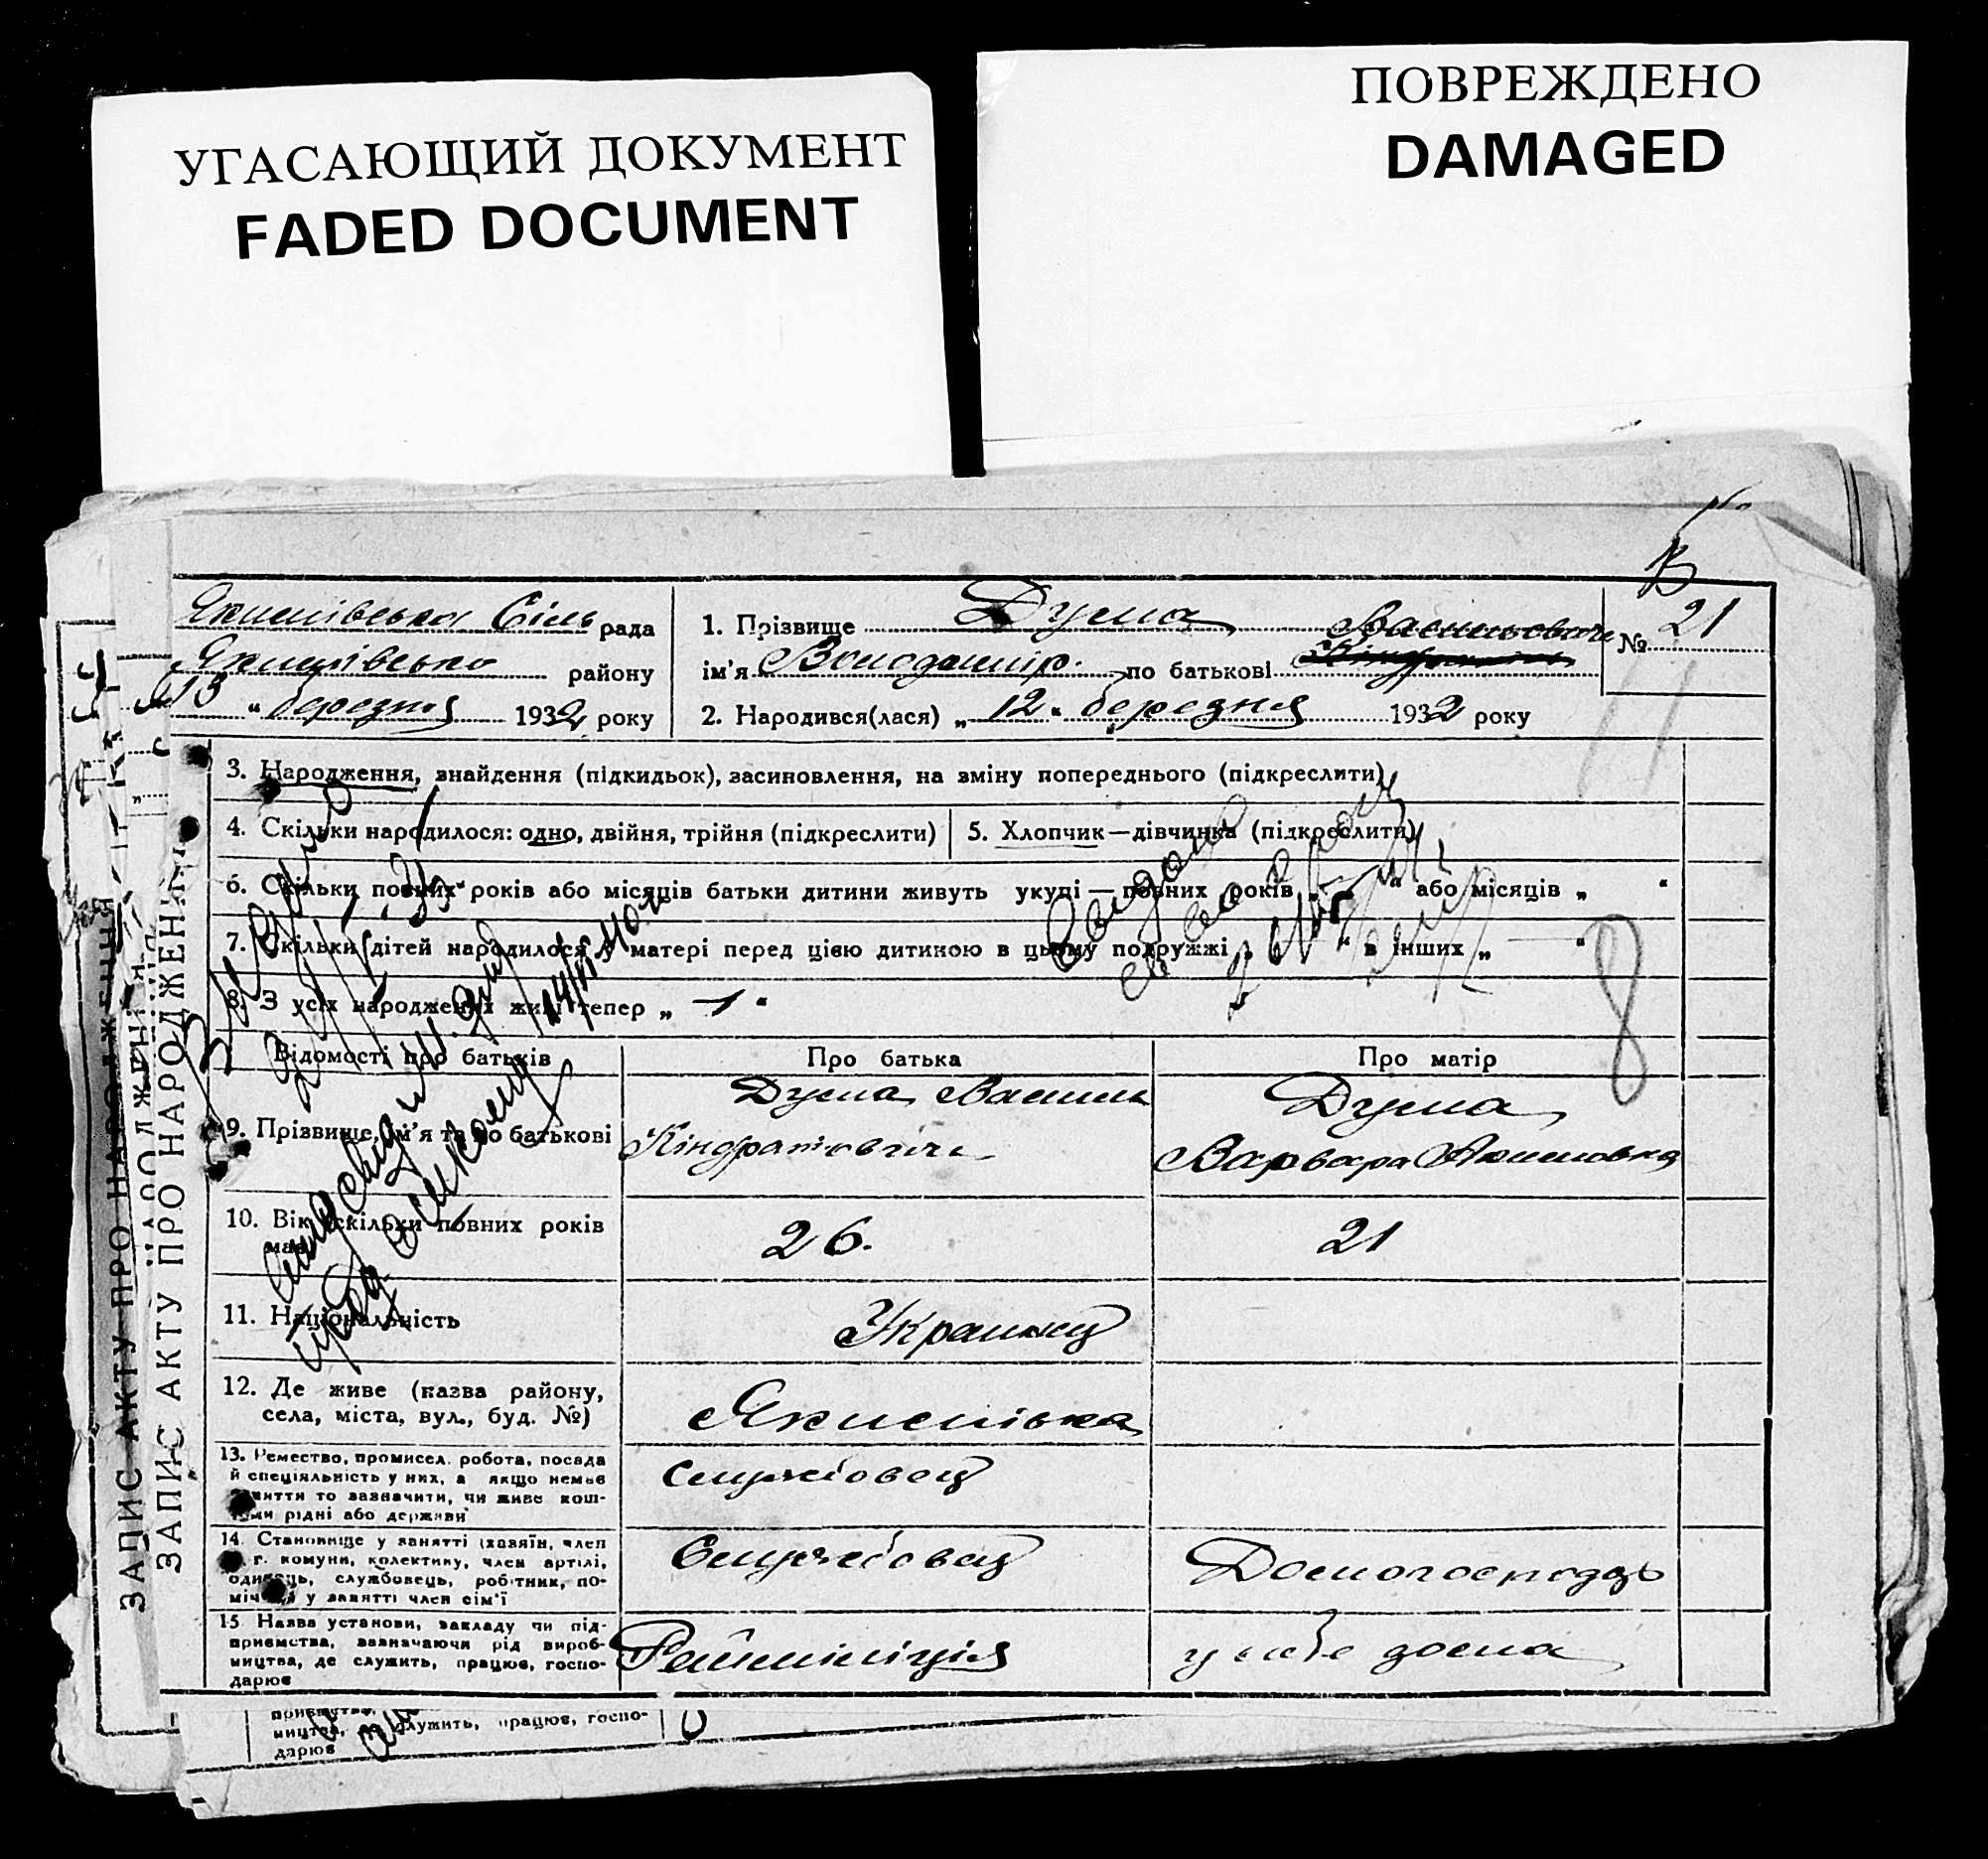 УГАСАЮЩИЙ ДОКУМЕНТ
FADED DOCUMENT
ПОВРЕЖДЕНО
DAMAGED
Якимівська Сіль рада
Якимівсько району
15 " березня 1932 року
1. Прізвище Дума
ім'я Володимір по батькові Васильович Кіндратович
№ 21
2. Народився(лася) „ 12 " березня 1932 року
3. Народження, знайдення (підкидьок), засиновлення, на зміну попереднього (підкреслити)
4. Скільки народилося: одно, двійня, трійня (підкреслити)
5. Хлопчик—дівчинка (підкреслити)
6. Скільки повних років або місяців батьки дитини живуть укупі — повних років „ " або місяців „ "
7. Скільки дітей народилося у матері перед цією дитиною в цьому подружжі „ " в інших „ — "
8. З усіх народжених живі тепер „ 1 "
8
Відомості про батьків
Про батька
Про матір
9. Прізвище, ім'я та по батькові
Дума Василь
Кіндратович
Дума
Варвара Якимовна
10. Вік, скільки повних років має
26.
21
11. Національність
Украинец
12. Де живе (назва району, села, міста, вул., буд. №)
Якимівка
13. Ремество, промисел, робота, посада й спеціяльність у них, а якщо немає заняття то зазначити, чи живе коштами рідні або держави
Службовец
14. Становище у занятті (хазяїн, член с. г. комуни, колективу, член артілі, одинець, службовець, робітник, помічний у занятті член сім'ї
Службовец
Домогосподар
15. Назва установи, закладу чи підприємства, зазначаючи рід виробництва, де служить, працює, господарює
Райміліція
у себе дома
ЗАПИС АКТУ ПРО НАРОДЖЕННЯ
ЗАПИС АКТУ ПРО НАРОДЖЕННЯ
служить, працює, госпо-
дарює